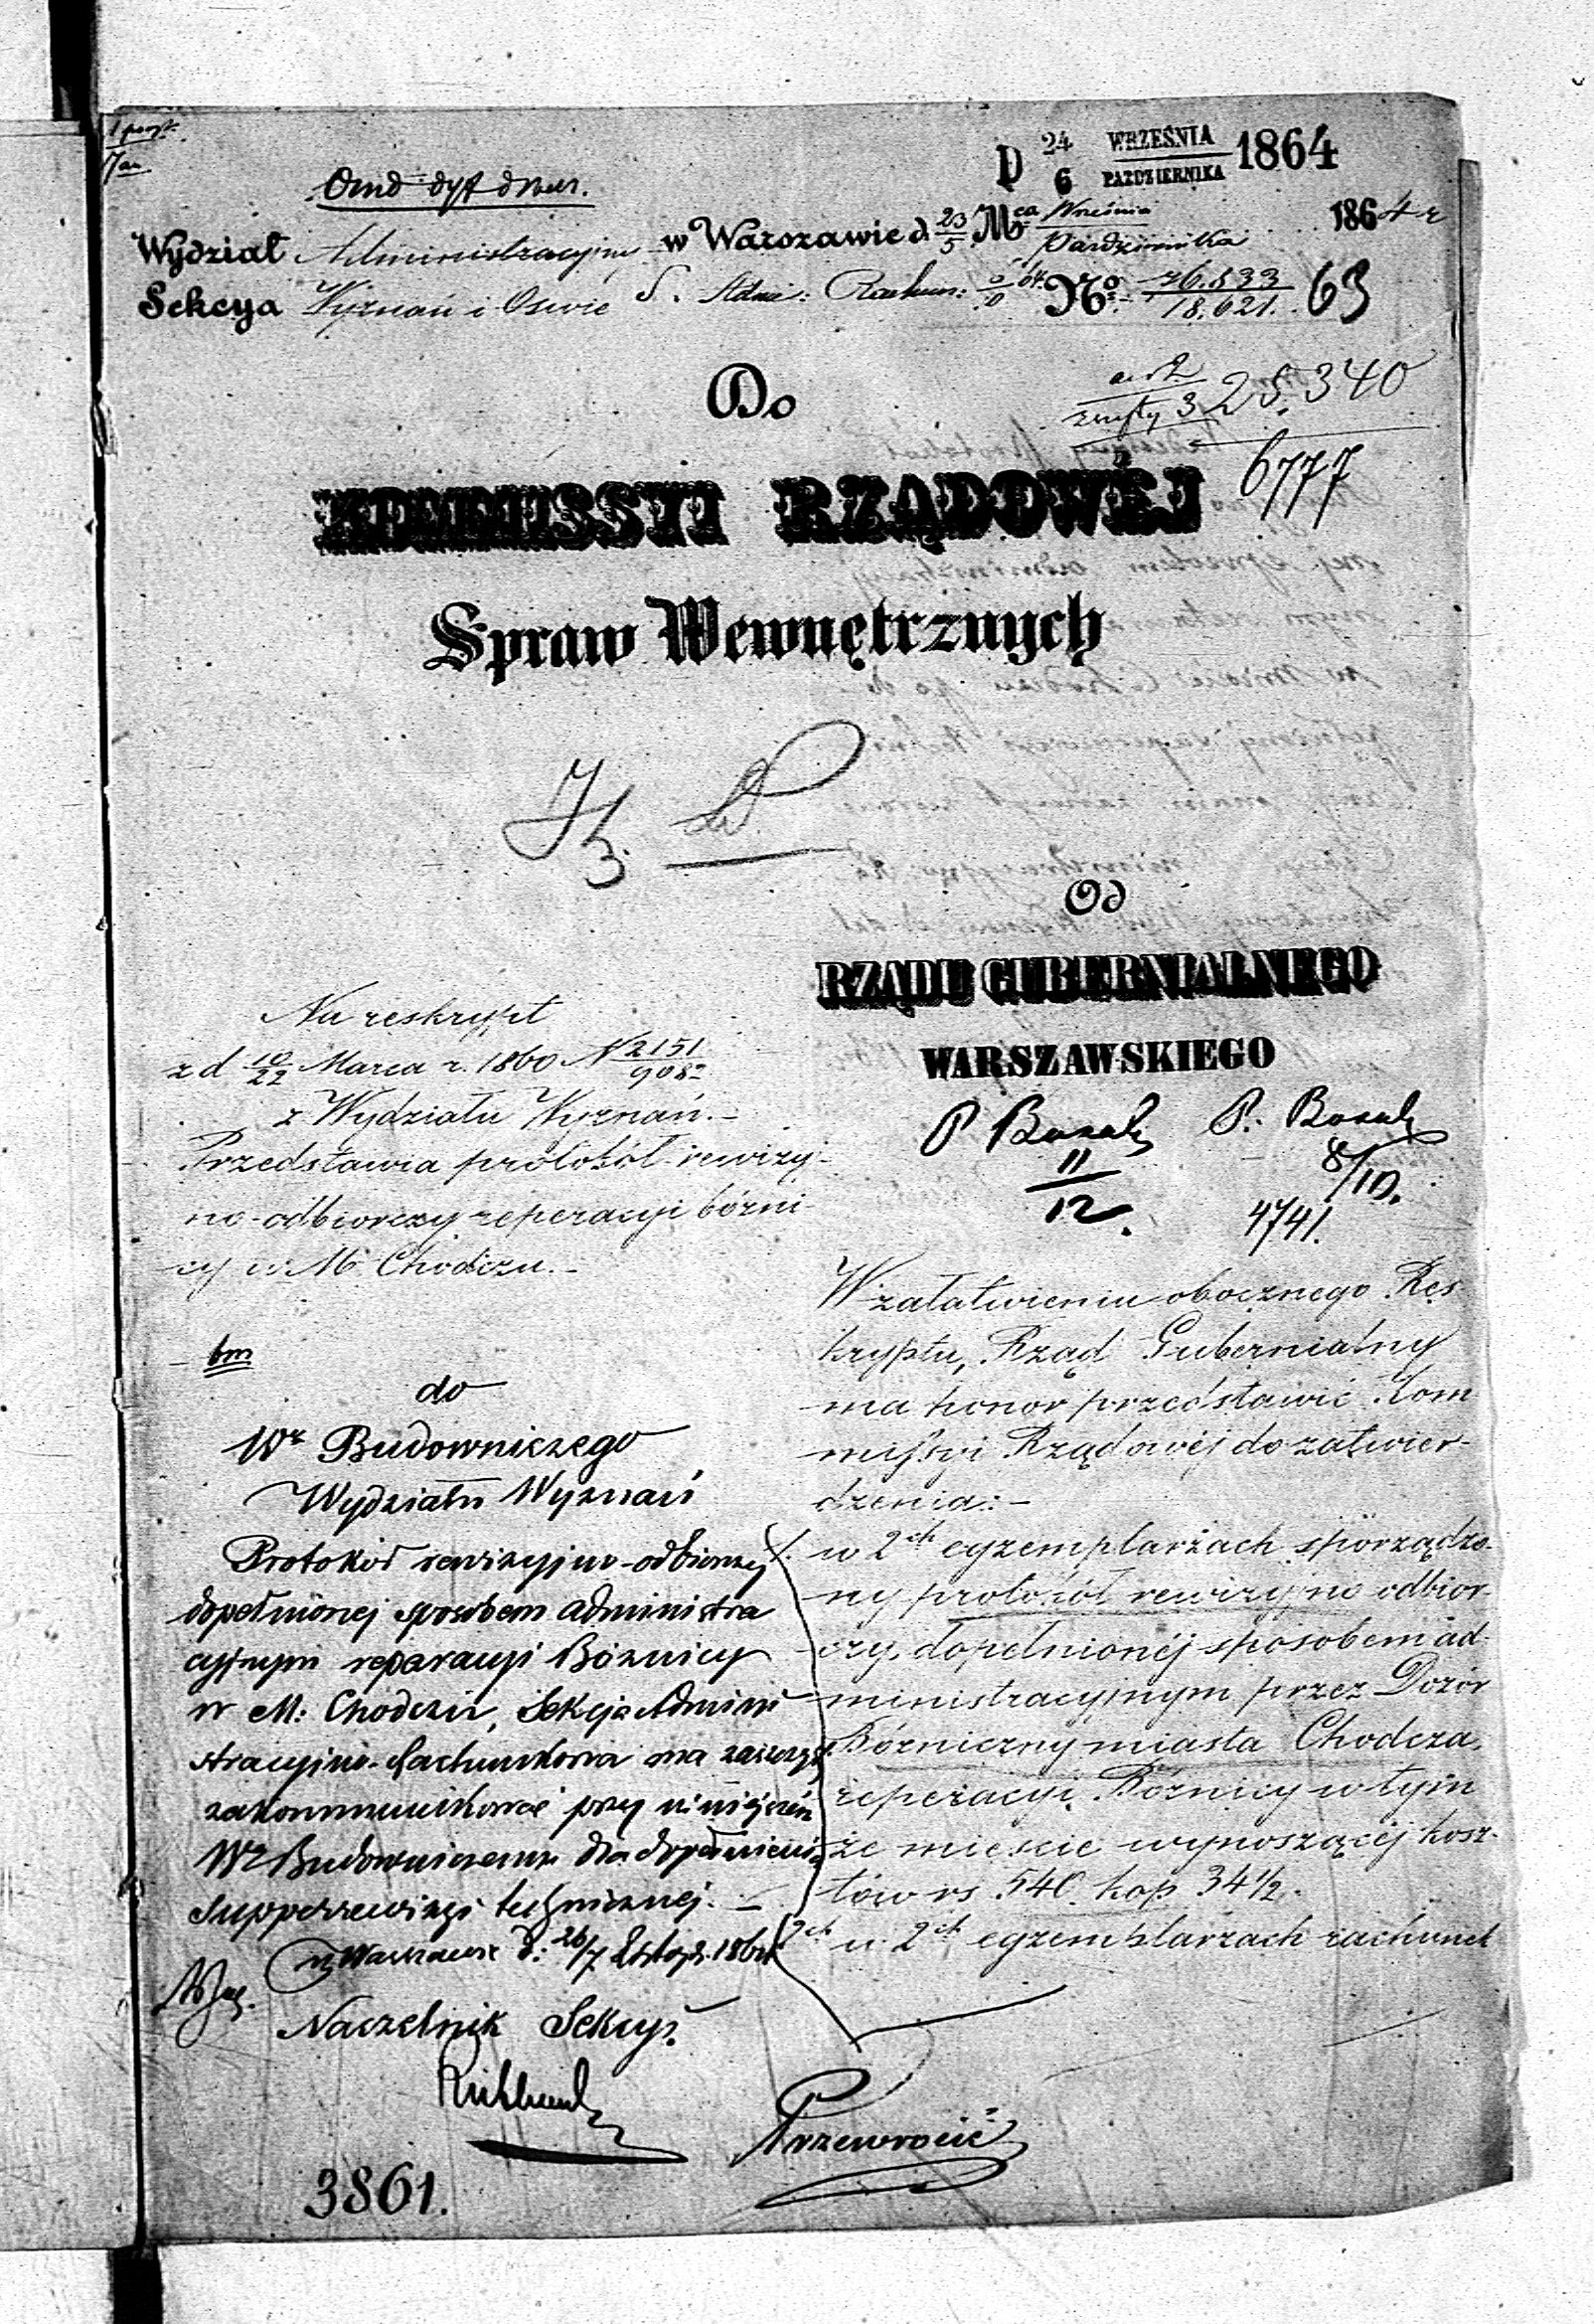 D 24 WRZEŚNIA 1864
6 PAŹDZIERNIKA
Wydział Administracyjny w Warszawie d. 23/5 Mca Września 1864 r
Października
Sekcya Wyznań i Oświe S. Adm: Rachun: No 76.833 63
18.621.
25.340
6777
Do
KOMMISSYI RZĄDOWÉJ
Spraw Wewnętrznych
Od
RZĄDU GUBERNIALNEGO
WARSZAWSKIEGO
11/12.
8/10.
4741.
Na reskrypt
z d 10/22 Marca r. 1860 N 2151
z Wydziału Wyznań.-
Przedstawia protokół rewizyj-
no-odbiorczy reperacyi bóżni-
cy w M. Chodczu.-
bm
do
Wo Budowniczego
Wydziału Wyznań
Protokół rewizyjno-odbiorczy
dopełnionej sposobem administra
cyjnym reparacyi Bóżnicy
w M: Chodczu, Sekcja Admini
stracyjno-Rachunkowa ma zaszczyt
zakommunikować przy niniejszém
Wu Budowniczemu dla dopełnienia
superrewizyi technicznej.-
w Warszawie d: 26/7 Listop. 1864
Naczelnik Sekcyi
3861.
W załatwieniu obocznego Res-
kryptu, Rząd Gubernialny
ma honor przedstawić Kom
missyi Rządowéj do zatwier-
dzenia:-
1. w 2ch egzemplarzach sporządzo-
ny protokół rewizyjno odbior
czy, dopełnionéj sposobem ad-
ministracyjnym przez Dozór
Bóżniczny miasta Chodcza,
reperacyi Bóżnicy w tym
że mieście wynoszącéj kosz-
tów rs 540 kop 34½.
2ch w 2ch egzemplarzach rachunek
Przewrócić